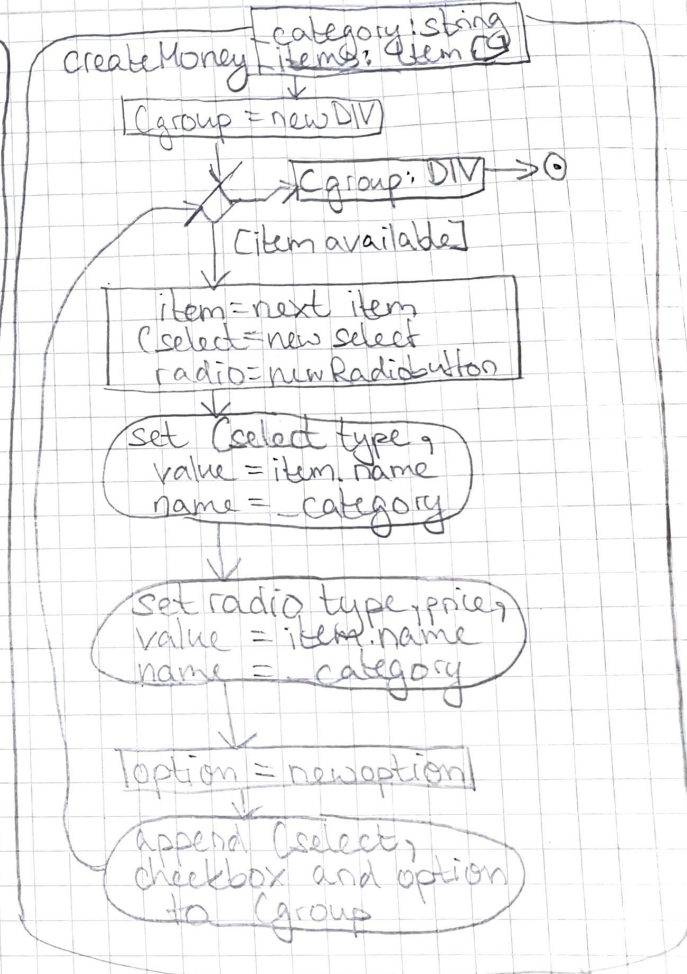 category: string
createMoney items: Item[]
Cgroup = new DIV
Cgroup: DIV
[item available]
item=next item
Cselect=new select
radio=newRadiobutton
set Cselect type,
value = item.name
name = _category
set radio type, price,
value = item.name
name = _category
option = newoption
append Cselect,
checkbox and option
to Cgroup